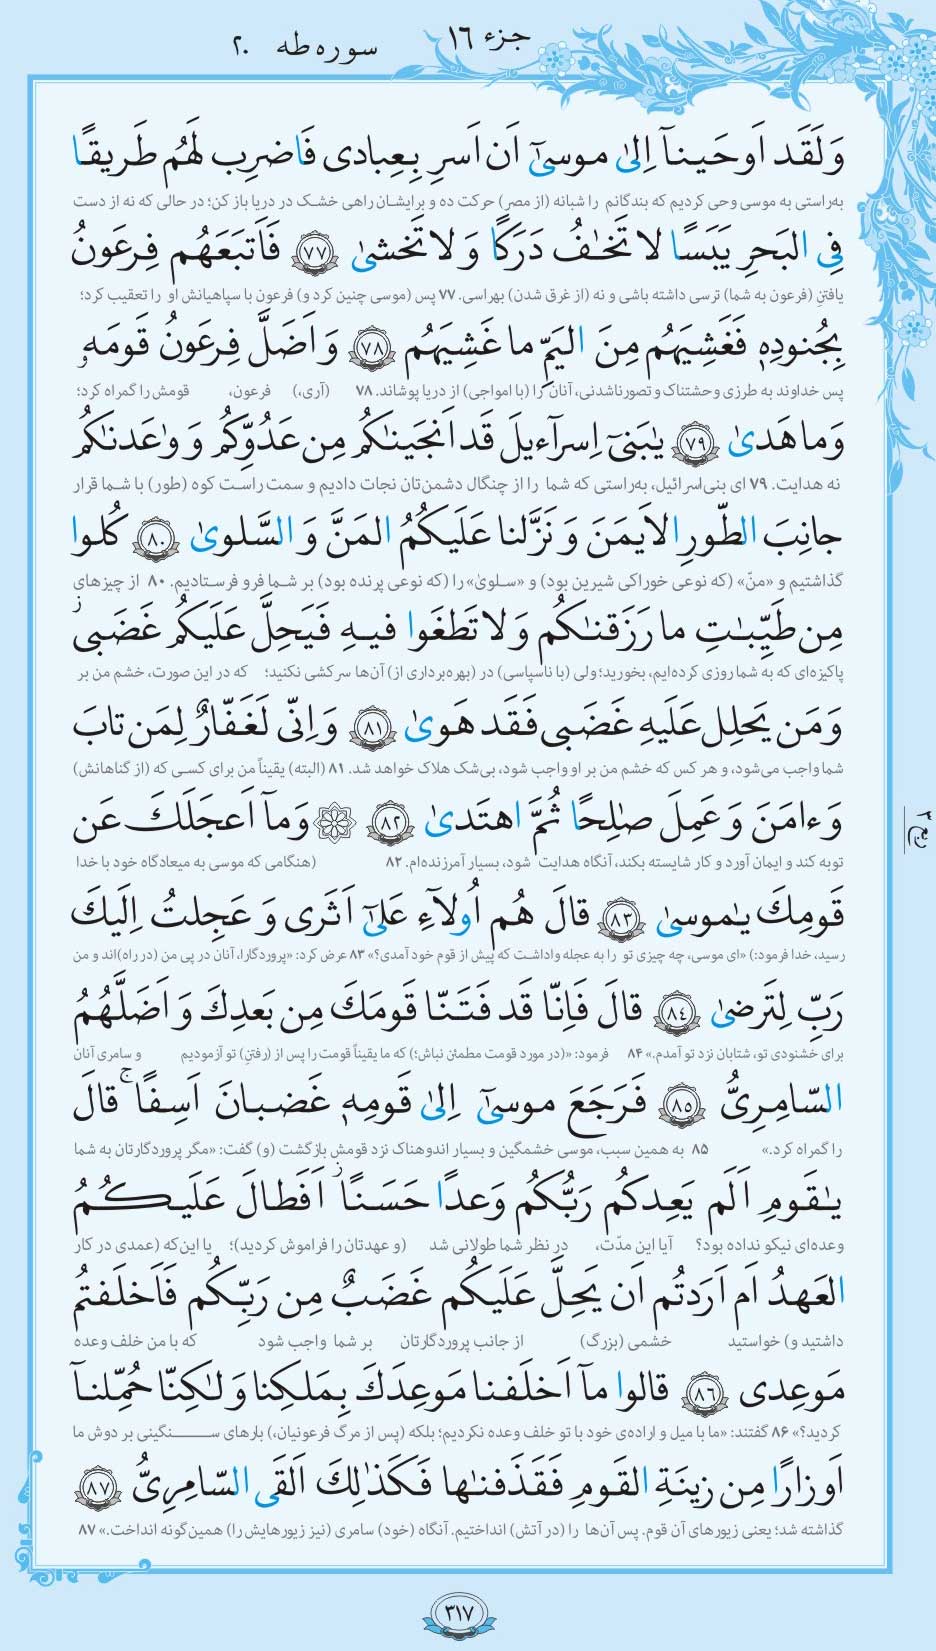 جزء ١٦
سوره طه ٢٠
وَلَقَد اَوحَينآ اِلىٰ موسىٰٓ اَن اَسرِ بِعِبادى فَاضرِب لَهُم طَريقًا
به‌راستی به موسی وحی کردیم که بندگانم را شبانه (از مصر) حرکت ده و برایشان راهی خشک در دریا باز کن؛ در حالی که نه از دست
فِى البَحرِ يَبَسًا لا تَخٰفُ دَرَكًا وَلا تَخشىٰ ﴿٧٧﴾ فَاَتبَعَهُم فِرعَونُ
یافتنِ (فرعون به شما) ترسی داشته باشی و نه (از غرق شدن) بهراسی. ۷۷ پس (موسی چنین کرد و) فرعون با سپاهیانش او را تعقیب کرد؛
بِجُنودِهٖ فَغَشِيَهُم مِنَ اليَمِّ ما غَشِيَهُم ﴿٧٨﴾ وَاَضَلَّ فِرعَونُ قَومَهٗ
پس خداوند به طرزی وحشتناک و تصورناشدنی، آنان را (با امواجی) از دریا پوشاند. ۷۸ (آری،) فرعون، قومش را گمراه کرد؛
وَما هَدىٰ ﴿٧٩﴾ يٰبَنىٓ اِسرآءيلَ قَد اَنجَينٰكُم مِن عَدُوِّكُم وَوٰعَدنٰكُم
نه هدایت. ۷۹ ای بنی‌اسرائیل، به‌راستی که شما را از چنگال دشمن‌تان نجات دادیم و سمت راست کوه (طور) با شما قرار
جانِبَ الطّورِ الاَيمَنَ وَنَزَّلنا عَلَيكُمُ المَنَّ وَالسَّلوىٰ ﴿٨٠﴾ كُلوا
گذاشتیم و «منّ» (که نوعی خوراکی شیرین بود) و «سلویٰ» را (که نوعی پرنده بود) بر شما فرو فرستادیم. ۸۰ از چیزهای
مِن طَيِّبٰتِ ما رَزَقنٰكُم وَلا تَطغَوا فيهِ فَيَحِلَّ عَلَيكُم غَضَبى ز
پاکیزه‌ای که به شما روزی کرده‌ایم، بخورید؛ ولی (با ناسپاسی) در (بهره‌برداری از) آن‌ها سرکشی نکنید؛ که در این صورت، خشم من بر
وَمَن يَحلِل عَلَيهِ غَضَبى فَقَد هَوىٰ ﴿٨١﴾ وَاِنّى لَغَفّارٌ لِمَن تابَ
شما واجب می‌شود، و هر کس که خشم من بر او واجب شود، بی‌شک هلاک خواهد شد. ۸۱ (البته) یقیناً من برای کسی که (از گناهانش)
وَءامَنَ وَعَمِلَ صٰلِحًا ثُمَّ اهتَدىٰ ﴿٨٢﴾ ۞ وَمآ اَعجَلَكَ عَن
توبه کند و ایمان آورد و کار شایسته بکند، آنگاه هدایت شود، بسیار آمرزنده‌ام. ۸۲ (هنگامی که موسی به میعادگاه خود با خدا
ربع ٢
قَومِكَ يٰموسىٰ ﴿٨٣﴾ قالَ هُم اُولآءِ عَلىٰٓ اَثَرى وَعَجِلتُ اِلَيكَ
رسید، خدا فرمود:) «ای موسی، چه چیزی تو را به عجله واداشت که پیش از قوم خود آمدی؟» ۸۳ عرض کرد: «پروردگارا، آنان در پی من (در راه)اند و من
رَبِّ لِتَرضىٰ ﴿٨٤﴾ قالَ فَاِنّا قَد فَتَنّا قَومَكَ مِن بَعدِكَ وَاَضَلَّهُمُ
برای خشنودی تو، شتابان نزد تو آمدم.» ۸۴ فرمود: «(در مورد قومت مطمئن نباش؛) که ما یقیناً قومت را پس از (رفتن) تو آزمودیم و سامری آنان
السّامِرِىُّ ﴿٨٥﴾ فَرَجَعَ موسىٰٓ اِلىٰ قَومِهٖ غَضبانَ اَسِفًا ج قالَ
را گمراه کرد.» ۸۵ به همین سبب، موسی خشمگین و بسیار اندوهناک نزد قومش بازگشت (و) گفت: «مگر پروردگارتان به شما
يٰقَومِ اَلَم يَعِدكُم رَبُّكُم وَعدًا حَسَنًا ز اَفَطالَ عَلَيكُمُ
وعده‌ای نیکو نداده بود؟ آیا این مدّت، در نظر شما طولانی شد (و عهدتان را فراموش کردید)؛ یا این‌که (عمدی در کار
العَهدُ اَم اَرَدتُم اَن يَحِلَّ عَلَيكُم غَضَبٌ مِن رَبِّكُم فَاَخلَفتُم
داشتید و) خواستید خشمی (بزرگ) از جانب پروردگارتان بر شما واجب شود که با من خلف وعده
مَوعِدى ﴿٨٦﴾ قالوا مآ اَخلَفنا مَوعِدَكَ بِمَلكِنا وَلٰكِنّا حُمِّلنآ
کردید؟» ۸۶ گفتند: «ما با میل و اراده‌ی خود با تو خلف وعده نکردیم؛ بلکه (پس از مرگ فرعونیان،) بارهای سنگینی بر دوش ما
اَوزارًا مِن زينَةِ القَومِ فَقَذَفنٰها فَكَذٰلِكَ اَلقَى السّامِرِىُّ ﴿٨٧﴾
گذاشته شد؛ یعنی زیورهای آن قوم. پس آن‌ها را (در آتش) انداختیم. آنگاه (خود) سامری (نیز زیورهایش را) همین‌گونه انداخت.» ۸۷
٣١٧